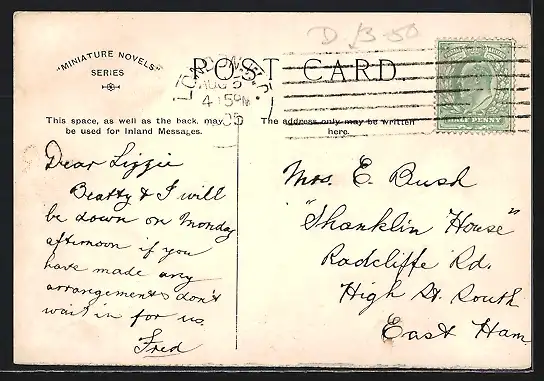 D B-50
"MINIATURE NOVELS"
SERIES
POST CARD
LONDON
AUG 5
4.15PM
05
HALF PENNY
This space, as well as the back, may
be used for Inland Messages.
The address only may be written
here.
Dear Lizzie
Beatty & I will
be down on Monday
afternoon if you
have made any
arrangements don't
wait in for us.
Fred
Mrs. E. Bush
"Shanklin House"
Radcliffe Rd.
High St. South
East Ham